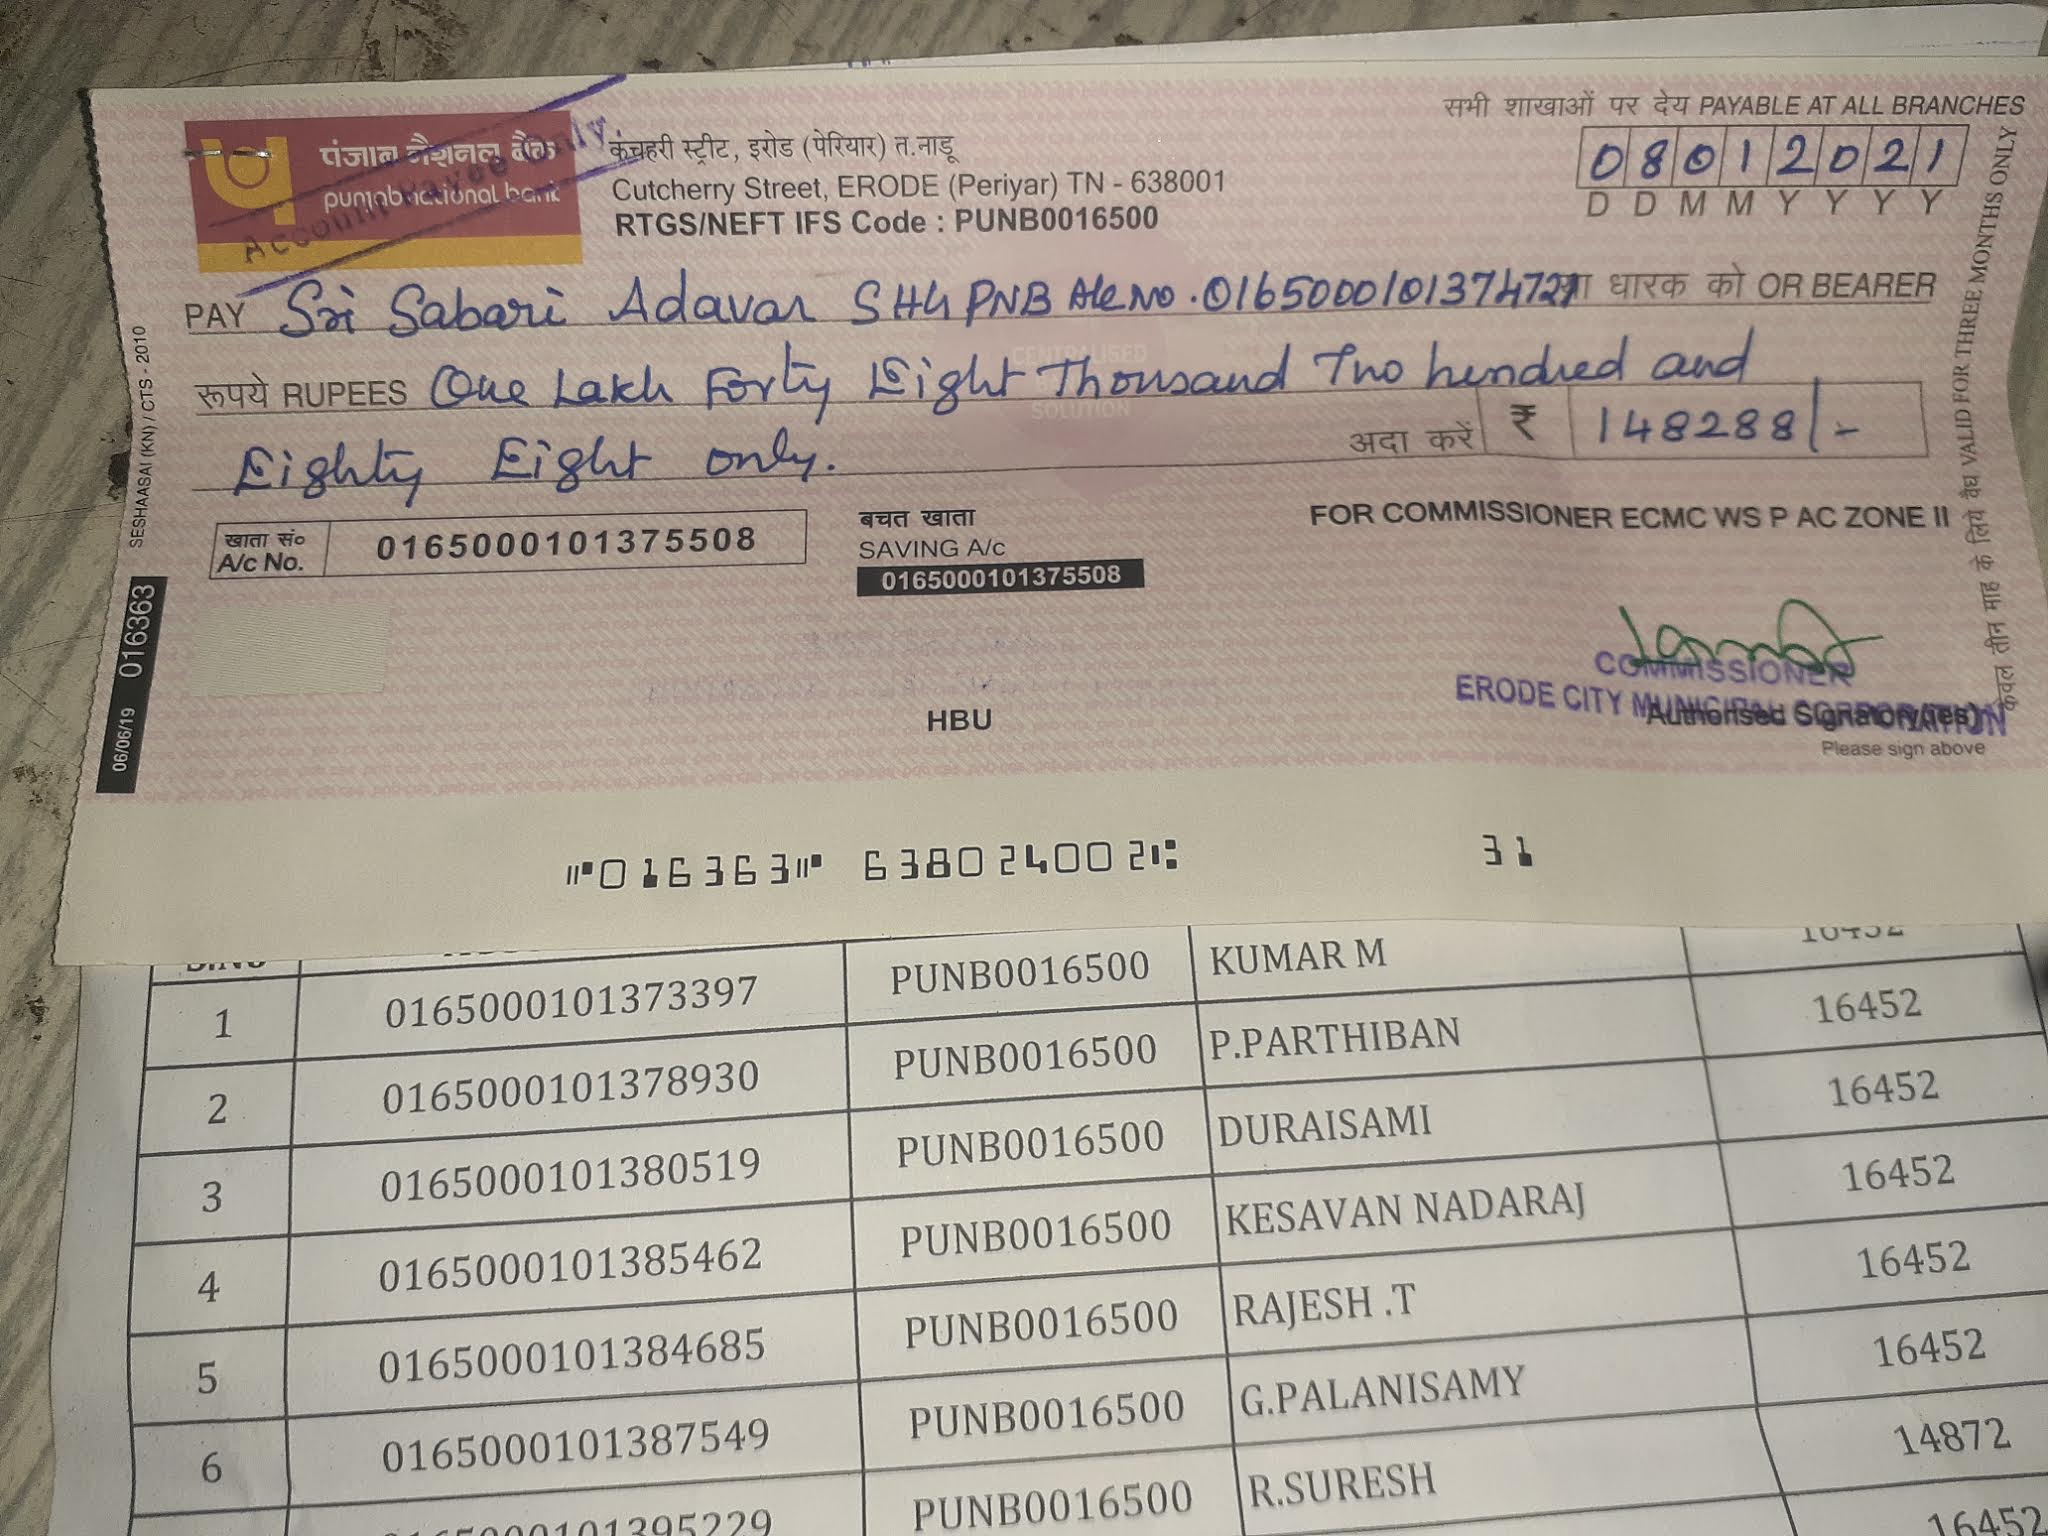 सभी शाखाओं पर देय PAYABLE AT ALL BRANCHES
पंजाब नैशनल बैंक
punjab national bank
Account Payee Only
कंचहरी स्ट्रीट, इरोड (पेरियार) त.नाडू
Cutcherry Street, ERODE (Periyar) TN - 638001
RTGS/NEFT IFS Code : PUNB0016500
08012021
D D M M Y Y Y Y
PAY Sri Sabari Adavar SHG PNB A/c No. 0165000101374721 या धारक को OR BEARER
रूपये RUPEES One Lakh Forty Eight Thousand Two hundred and
Eighty Eight only.
अदा करें ₹ 148288/-
खाता सं०
A/c No. 0165000101375508
बचत खाता
SAVING A/c
0165000101375508
FOR COMMISSIONER ECMC WS P AC ZONE II
COMMISSIONER
ERODE CITY MUNICIPAL CORPORATION
Authorised Signatory(ies)
Please sign above
HBU
SESHAASAI (KN) / CTS - 2010
06/06/19 016363
केवल तीन माह के लिये वैध VALID FOR THREE MONTHS ONLY
⑈016363⑈ 638024002⑆ 31
1 0165000101373397 PUNB0016500 KUMAR M 16452
2 0165000101378930 PUNB0016500 P.PARTHIBAN 16452
3 0165000101380519 PUNB0016500 DURAISAMI 16452
4 0165000101385462 PUNB0016500 KESAVAN NADARAJ 16452
5 0165000101384685 PUNB0016500 RAJESH .T 16452
6 0165000101387549 PUNB0016500 G.PALANISAMY 16452
0165000101395229 PUNB0016500 R.SURESH 14872
16452